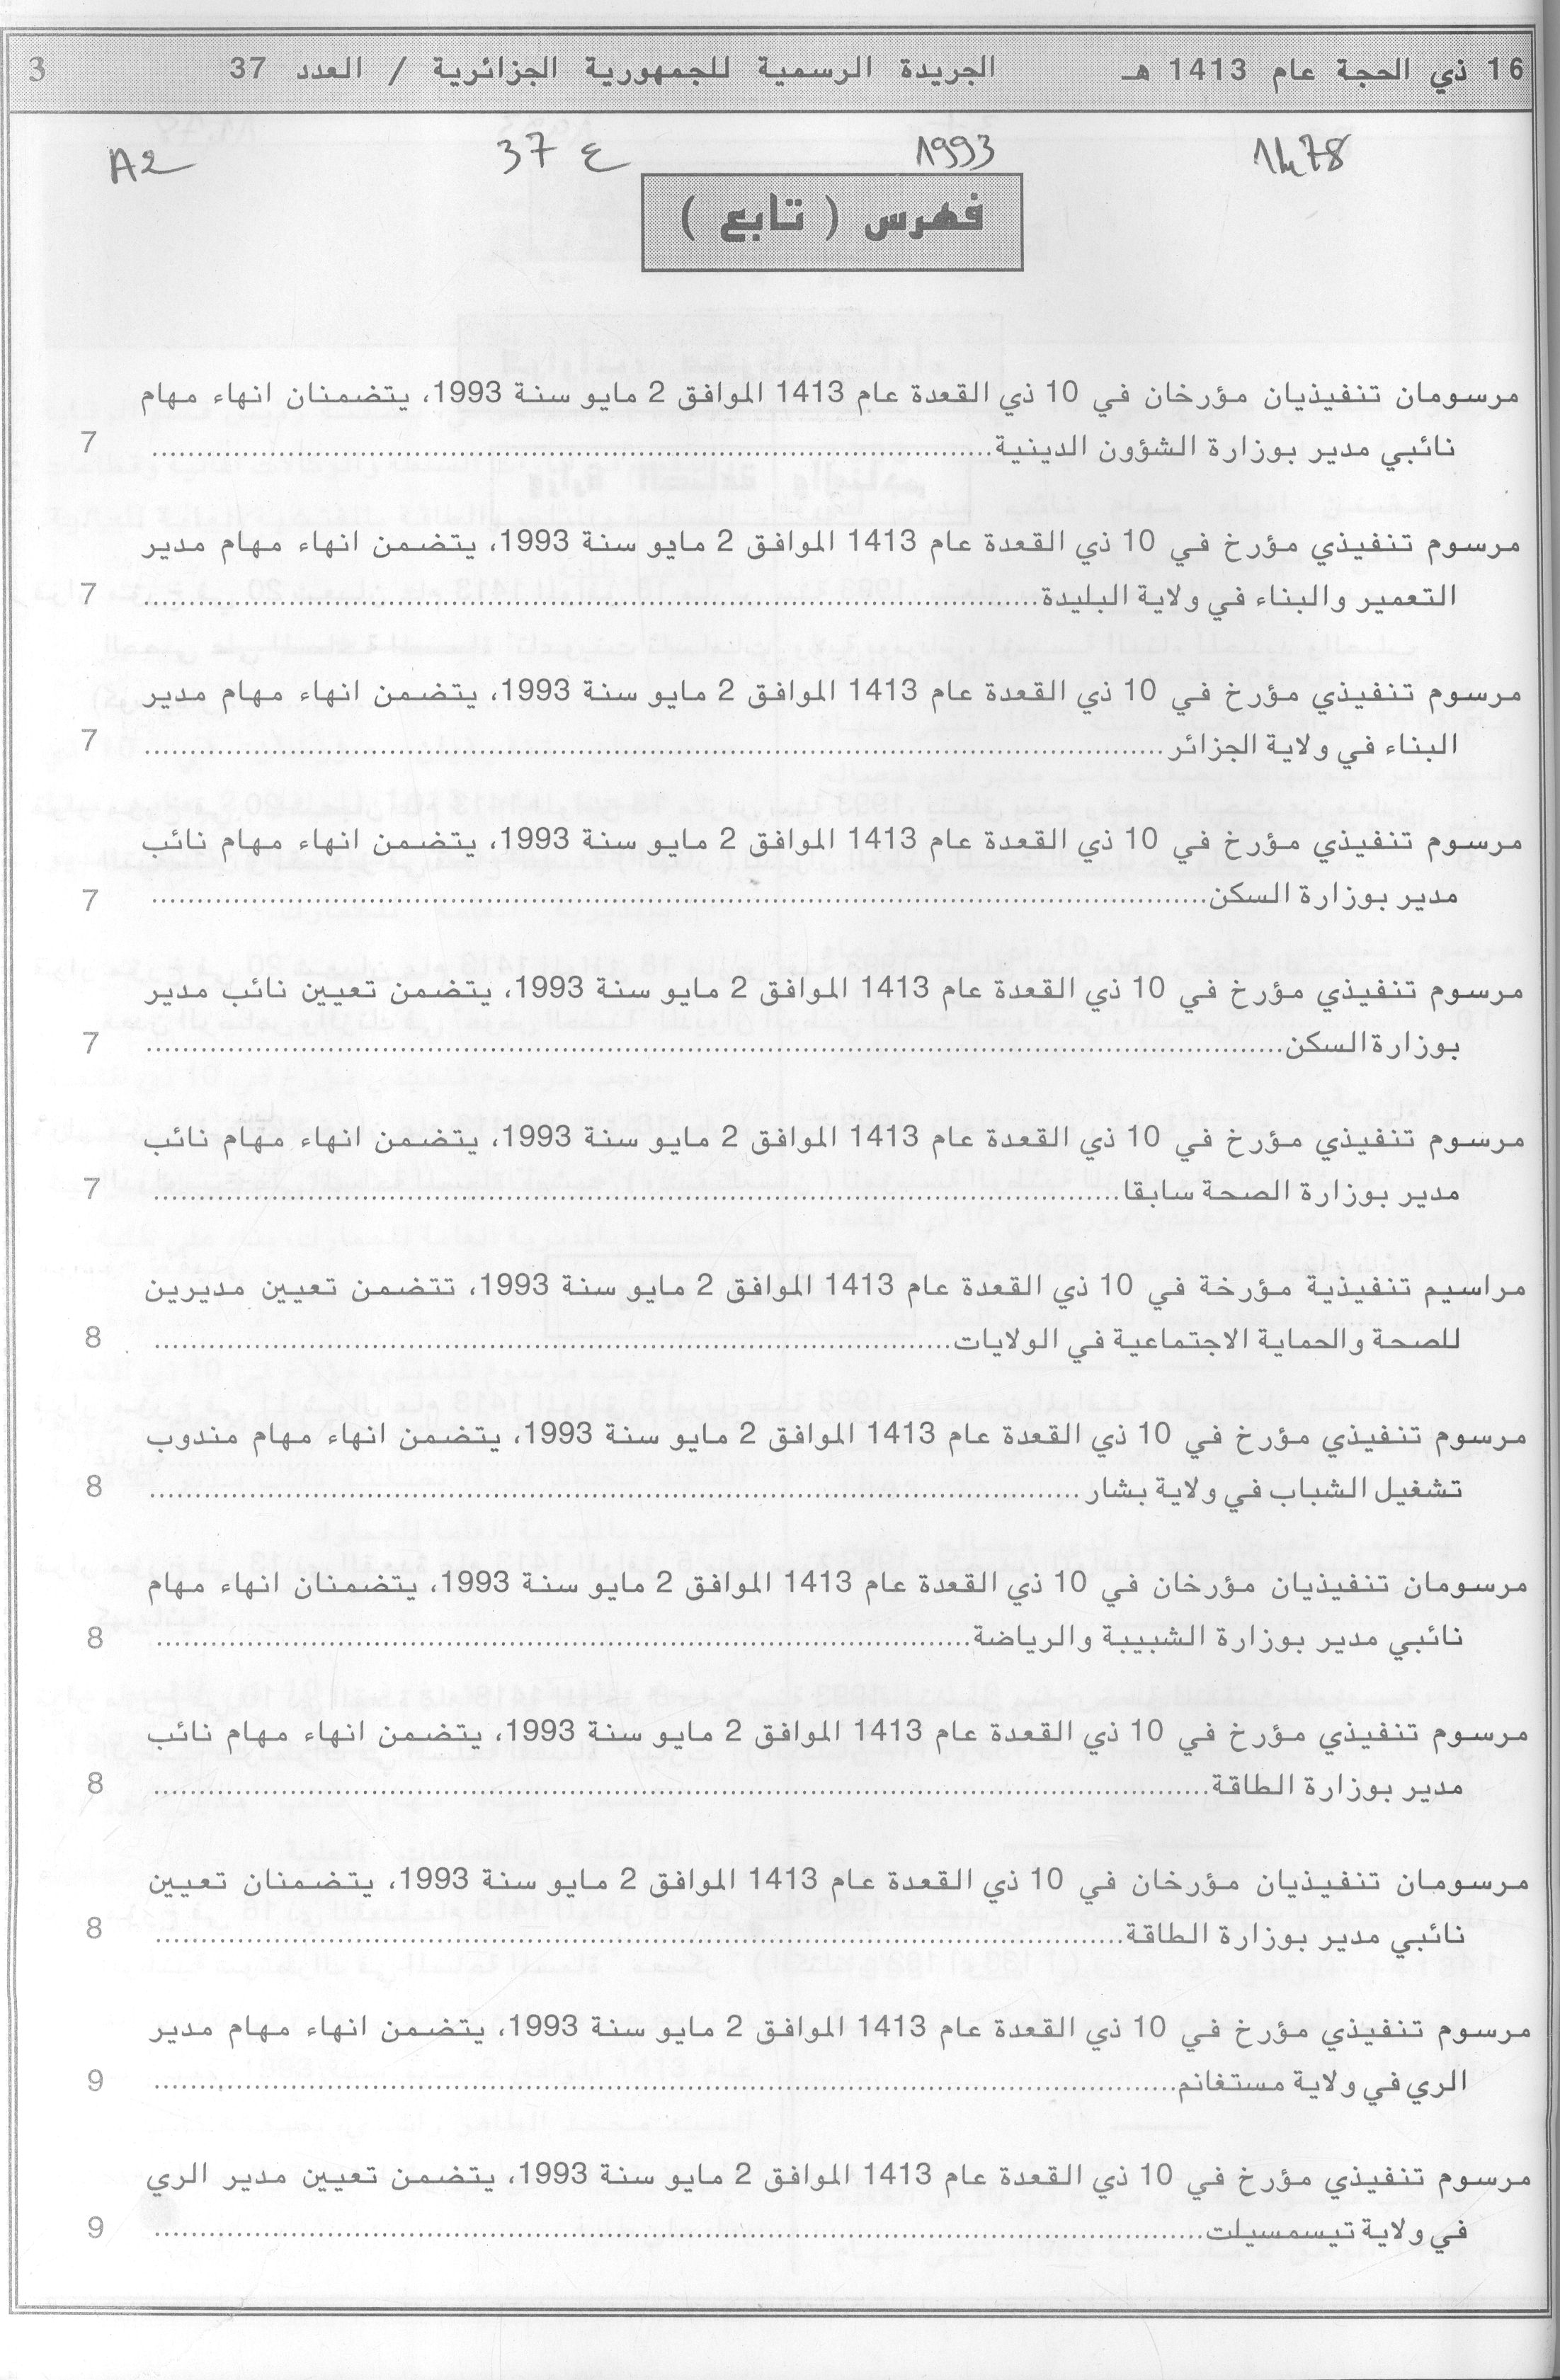 16 ذي الحجة عام 1413 هـ الجريدة الرسمية للجمهورية الجزائرية / العدد 37 3
1993 37 ع A2
فهرس ( تابع )
مرسومان تنفيذيان مؤرخان في 10 ذي القعدة عام 1413 الموافق 2 مايو سنة 1993، يتضمنان انهاء مهام
نائبي مدير بوزارة الشؤون الدينية 7
مرسوم تنفيذي مؤرخ في 10 ذي القعدة عام 1413 الموافق 2 مايو سنة 1993، يتضمن انهاء مهام مدير
التعمير والبناء في ولاية البليدة 7
مرسوم تنفيذي مؤرخ في 10 ذي القعدة عام 1413 الموافق 2 مايو سنة 1993، يتضمن انهاء مهام مدير
البناء في ولاية الجزائر 7
مرسوم تنفيذي مؤرخ في 10 ذي القعدة عام 1413 الموافق 2 مايو سنة 1993، يتضمن انهاء مهام نائب
مدير بوزارة السكن 7
مرسوم تنفيذي مؤرخ في 10 ذي القعدة عام 1413 الموافق 2 مايو سنة 1993، يتضمن تعيين نائب مدير
بوزارة السكن 7
مرسوم تنفيذي مؤرخ في 10 ذي القعدة عام 1413 الموافق 2 مايو سنة 1993، يتضمن انهاء مهام نائب
مدير بوزارة الصحة سابقا 7
مراسيم تنفيذية مؤرخة في 10 ذي القعدة عام 1413 الموافق 2 مايو سنة 1993، تتضمن تعيين مديرين
للصحة والحماية الاجتماعية في الولايات 8
مرسوم تنفيذي مؤرخ في 10 ذي القعدة عام 1413 الموافق 2 مايو سنة 1993، يتضمن انهاء مهام مندوب
تشغيل الشباب في ولاية بشار 8
مرسومان تنفيذيان مؤرخان في 10 ذي القعدة عام 1413 الموافق 2 مايو سنة 1993، يتضمنان انهاء مهام
نائبي مدير بوزارة الشبيبة والرياضة 8
مرسوم تنفيذي مؤرخ في 10 ذي القعدة عام 1413 الموافق 2 مايو سنة 1993، يتضمن انهاء مهام نائب
مدير بوزارة الطاقة 8
مرسومان تنفيذيان مؤرخان في 10 ذي القعدة عام 1413 الموافق 2 مايو سنة 1993، يتضمنان تعيين
نائبي مدير بوزارة الطاقة 8
مرسوم تنفيذي مؤرخ في 10 ذي القعدة عام 1413 الموافق 2 مايو سنة 1993، يتضمن انهاء مهام مدير
الري في ولاية مستغانم 9
مرسوم تنفيذي مؤرخ في 10 ذي القعدة عام 1413 الموافق 2 مايو سنة 1993، يتضمن تعيين مدير الري
في ولاية تيسمسيلت 9